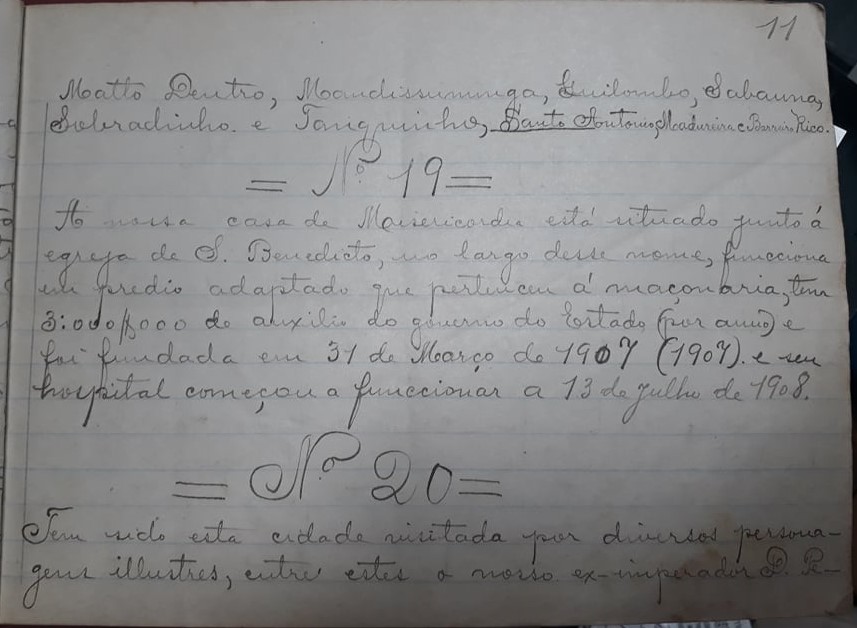 11
Matto Dentro, Mandissununga, Quilombo, Sabauna,
Sobradinho. e Tanquinho, Santo Antonio, Madureira e Barreiro Rico.
= Nº 19 =
A nossa casa de Misericordia está situado junto á
egreja de S. Benedicto, no largo desse nome, funcciona
em predio adaptado que pertenceu á maçonaria, tem
3:000$000 de auxilio do governo do Estado (por anno) e
foi fundada em 31 de Março de 1907 (1907). e seu
hospital começou a funccionar a 13 de julho de 1908.
= Nº 20 =
Tem sido esta cidade visitada por diversos persona-
gens illustres, entre estes o nosso ex-imperador D. Pe-